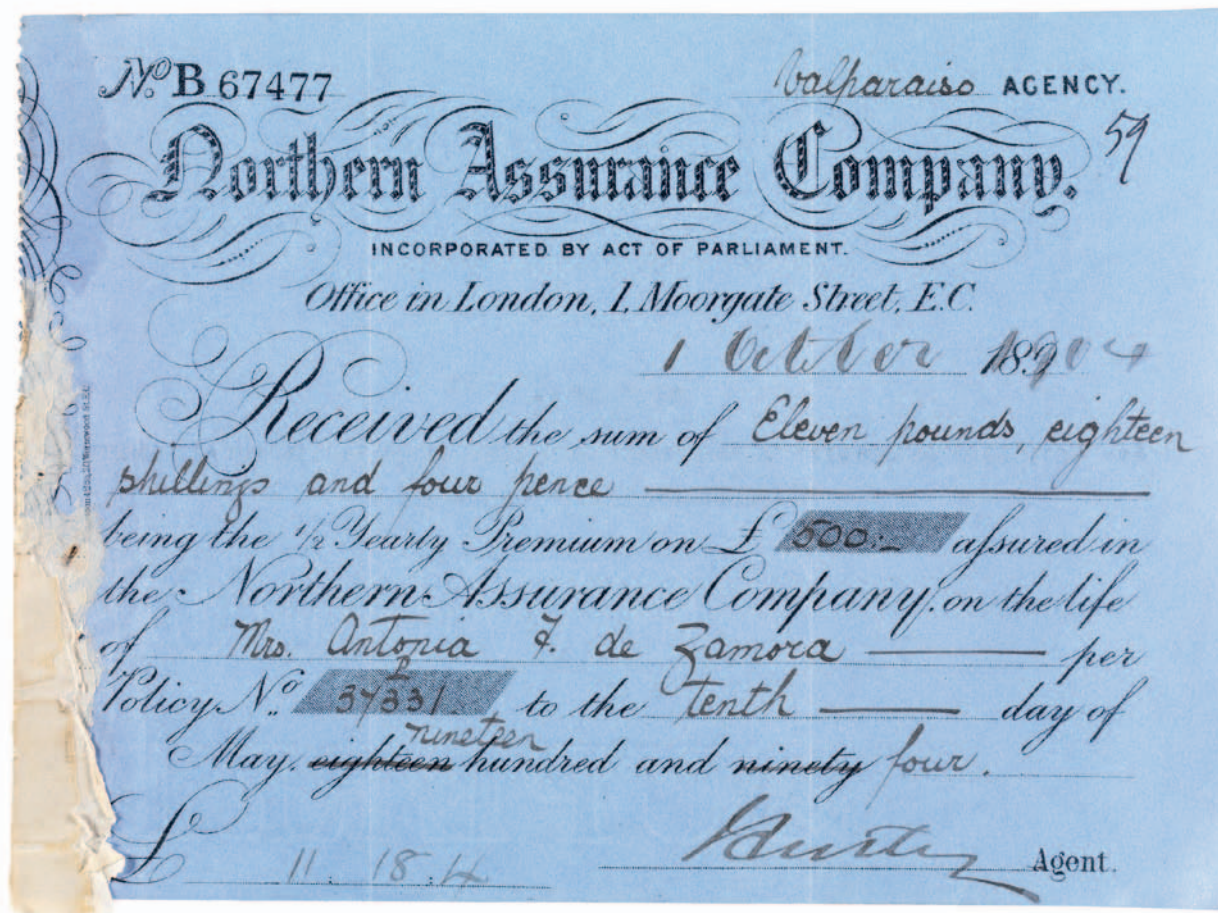 No. B 67477 Valparaiso AGENCY.
59
Northern Assurance Company.
INCORPORATED BY ACT OF PARLIAMENT.
Office in London, 1, Moorgate Street, E.C.
1 October 1904
Received the sum of Eleven pounds, eighteen
shillings and four pence
being the 1/2 Yearly Premium on £ 500:– assured in
the Northern Assurance Company, on the life
of Mrs. Antonia F. de Zamora per
Policy No. 37331 to the tenth day of
nineteen
May. eighteen hundred and ninety four.
£ 11. 18. 4 Agent.